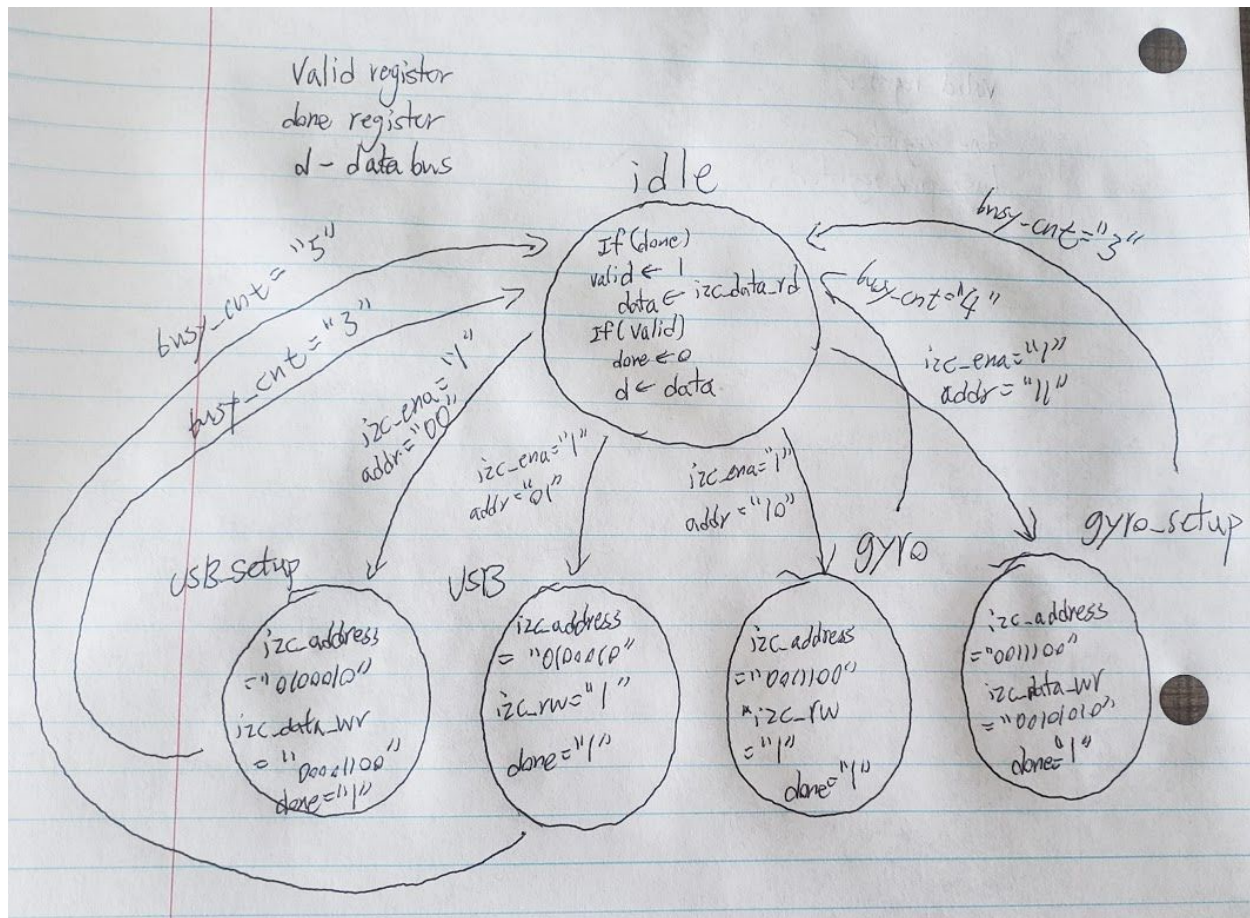 Valid registor
done register
d - data bus
idle
If (done)
valid ← 1
data ← i2c_data_rd
If (valid)
done ← 0
d ← data
busy_cnt = "5"
busy_cnt = "3"
i2c_ena = "1"
addr = "00"
i2c_ena = "1"
addr = "01"
i2c_ena = "1"
addr = "10"
busy_cnt = "3"
busy_cnt = "4"
i2c_ena = "1"
addr = "11"
USB_setup
i2c_address
= "0100010"
i2c_data_wr
= "00001100"
done = "1"
USB
i2c_address
= "0100010"
i2c_rw = "1"
done = "1"
gyro
i2c_address
= "0011100"
i2c_rw
= "1"
done = "1"
gyro_setup
i2c_address
= "0011100"
i2c_data_wr
= "00101010"
done = "1"